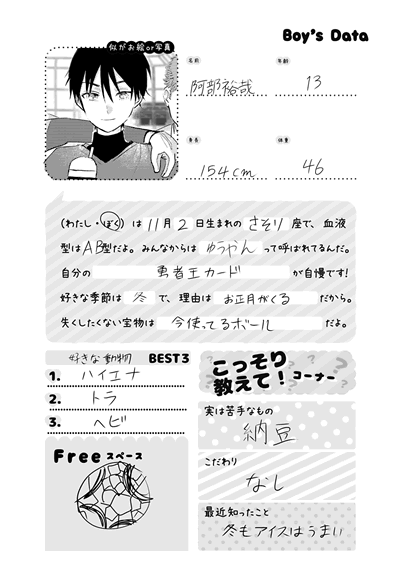 Boy's Data
似がお絵or写真
名前
阿部裕哉
年齢
13
身長
154cm
体重
46
(わたし・ぼく)は11月2日生まれのさそり座で、血液
型はAB型だよ。みんなからはゆうやんって呼ばれてるんだ。
自分の勇者王カードが自慢です!
好きな季節は冬で、理由はお正月がくるだから。
失くしたくない宝物は今使ってるボールだよ。
好きな動物 BEST3
1. ハイエナ
2. トラ
3. ヘビ
Freeスペース
こっそり
教えて!コーナー
実は苦手なもの
納豆
こだわり
なし
最近知ったこと
冬もアイスはうまい